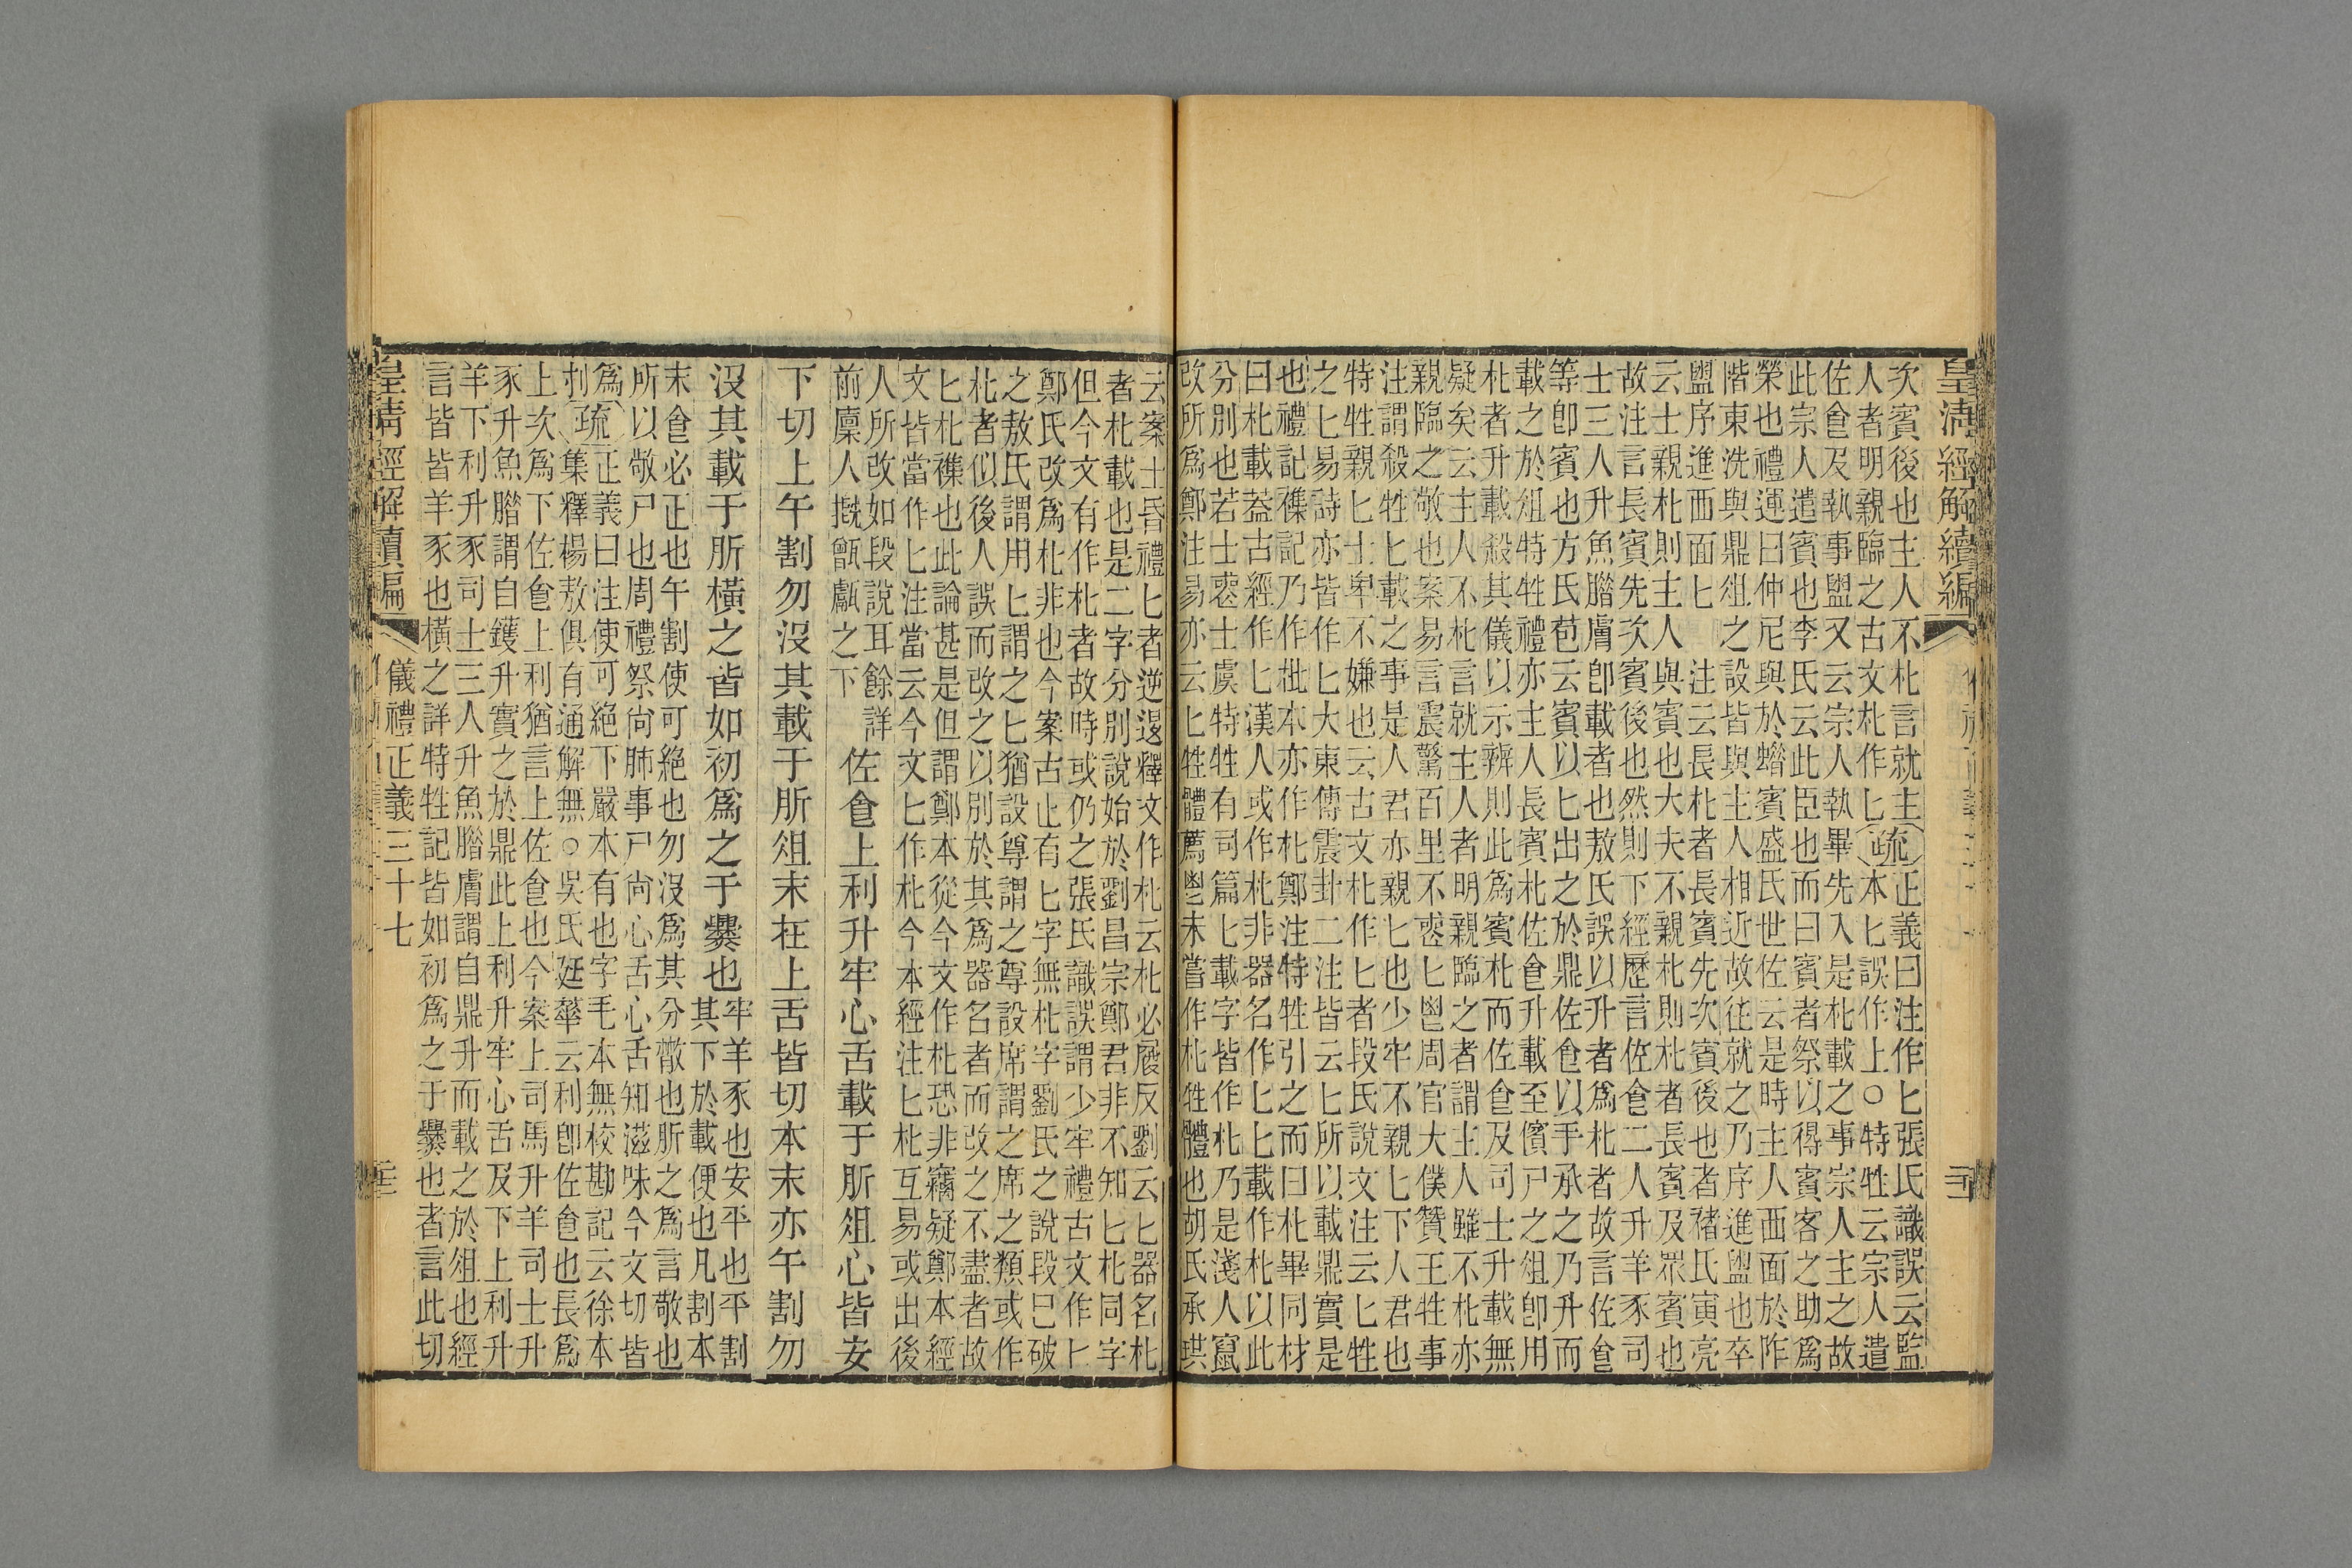 皇清經解續編
次賓後也主人不朼言就主
人者明親臨之古文朼作匕
疏
正義曰注作匕張氏識誤云監
本匕誤作上○特牲云宗人遣
佐食及執事盥又云宗人執畢先入是朼載之事宗人主之故
此宗人遣賓也李氏云此臣也而曰賓者祭以得賓客之助爲
榮也禮運曰仲尼與於蜡賓盛氏世佐云是時主人西面於阼
階東洗與鼎俎之設皆與主人相近故往就之乃序進盥也卒
盥序進西面匕 注云長朼者長賓先次賓後也者褚氏寅亮
云士親朼則主人與賓也大夫不親朼則朼者長賓及眾賓也
故注言長賓先次賓後也然則下經歷言佐食二人升羊豕司
士三人升魚腊膚卽載者也敖氏誤以升者爲朼者故言佐食
等卽賓也方氏苞云賓以匕出之於鼎佐食以手承之乃升而
載之於俎特牲禮亦主人長賓朼佐食升載至儐尸之俎卽用
朼者升載殺其儀以示辨則此爲賓朼而佐食及司士升載無
疑矣云主人不朼言就主人者明親臨之者謂主人雖不朼亦
親臨之敬也案易言震驚百里不喪匕鬯周官大僕贊王牲事
注謂殺牲匕載之事是人君亦親匕也少牢不親匕下人君也
特牲親匕士卑不嫌也云古文朼作匕者段氏說文注云匕牲
之匕易詩亦皆作匕大東傳震卦二注皆云匕所以載鼎實是
也禮記襍記乃作枇本亦作朼鄭注特牲引之而曰朼畢同材
曰朼載葢古經作匕漢人或作朼非器名作匕匕載作朼以此
分別也若士喪士虞特牲有司篇匕載字皆作朼乃是淺人竄
改所爲鄭注易亦云匕牲體薦鬯未嘗作朼牲體也胡氏承珙
云案士昏禮匕者逆退釋文作朼云朼必履反劉云匕器名朼
者朼載也是二字分別說始於劉昌宗鄭君非不知匕朼同字
但今文有作朼者故時或仍之張氏識誤謂少牢禮古文作匕
鄭氏改爲朼非也今案古止有匕字無朼字劉氏之說段已破
之敖氏謂用匕謂之匕猶設尊謂之尊設席謂之席之類或作
朼者似後人誤而改之以別於其爲器名者而改之不盡者故
匕朼襍也此論甚是但謂鄭本從今文作朼恐非竊疑鄭本經
文皆當作匕注當云今文匕作朼今本經注匕朼互易或出後
人所改如段說耳餘詳
前廩人摡甑甗之下
佐食上利升牢心舌載于肵俎心皆安
下切上午割勿沒其載于肵俎末在上舌皆切本末亦午割勿
沒其載于肵橫之皆如初爲之于爨也
牢羊豕也安平也平割
其下於載便也凡割本
末食必正也午割使可絕也勿沒爲其分散也肵之爲言敬也
所以敬尸也周禮祭尚肺事尸尚心舌心舌知滋味今文切皆
爲
刌
疏
正義曰注使可絕下嚴本有也字毛本無校勘記云徐本
集釋楊敖俱有通解無○吳氏廷華云利卽佐食也長爲
上次爲下佐食上利猶言上佐食也今案上司馬升羊司士升
豕升魚腊謂自鑊升實之於鼎此上利升牢心舌及下上利升
羊下利升豕司士三人升魚腊膚謂自鼎升而載之於俎也經
言皆皆羊豕也橫之詳特牲記皆如初爲之于爨也者言此切
皇清經解續編
儀禮正義三十七